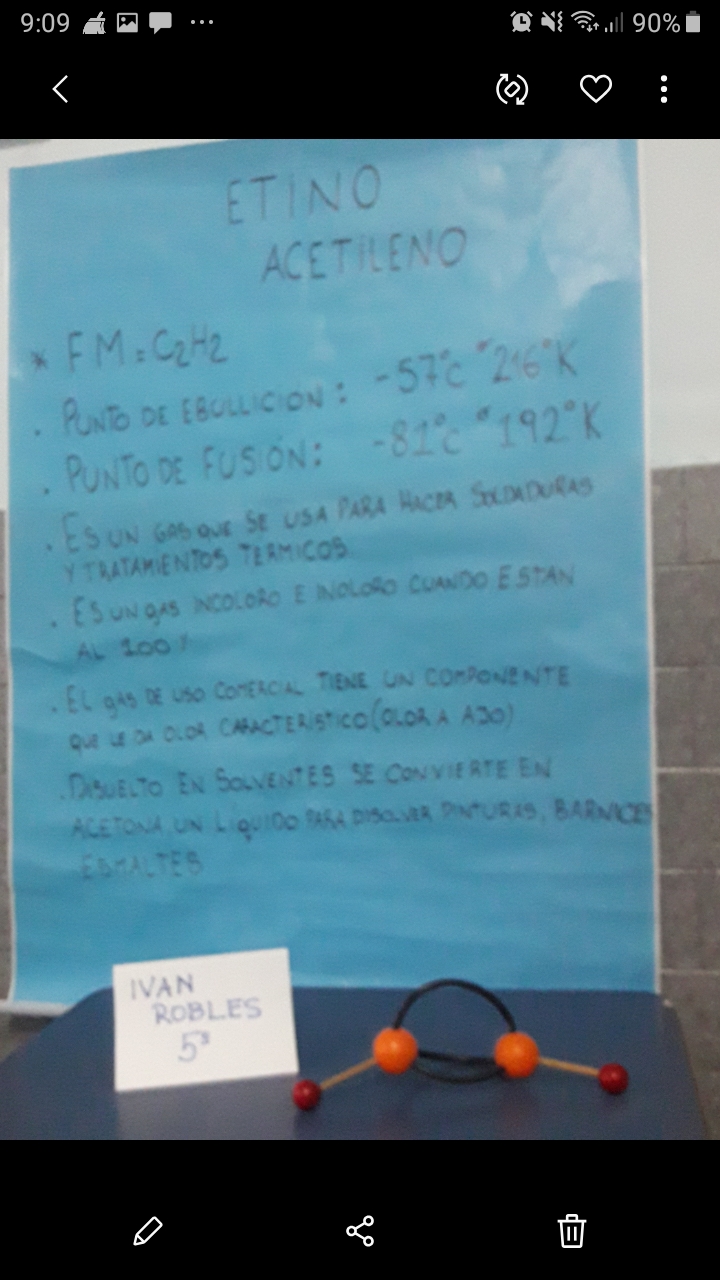 9:09
90%
ETINO
ACETILENO
* FM = C2H2
. PUNTO DE EBULLICION : -57°C "216°K
. PUNTO DE FUSIÓN: -81°C "192°K
. ES UN GAS QUE SE USA PARA HACER SOLDADURAS
Y TRATAMIENTOS TERMICOS
. ES UN gAS INCOLORO E INOLORO CUANDO ESTAN
AL 100 %
. EL gAS DE USO COMERCIAL TIENE UN COMPONENTE
QUE LE DA OLOR CARACTERISTICO (OLOR A AJO)
. DISUELTO EN SOLVENTES SE CONVIERTE EN
ACETONA, UN LIQUIDO PARA DISOLVER PINTURAS, BARNICES
ESMALTES
IVAN
ROBLES
5°